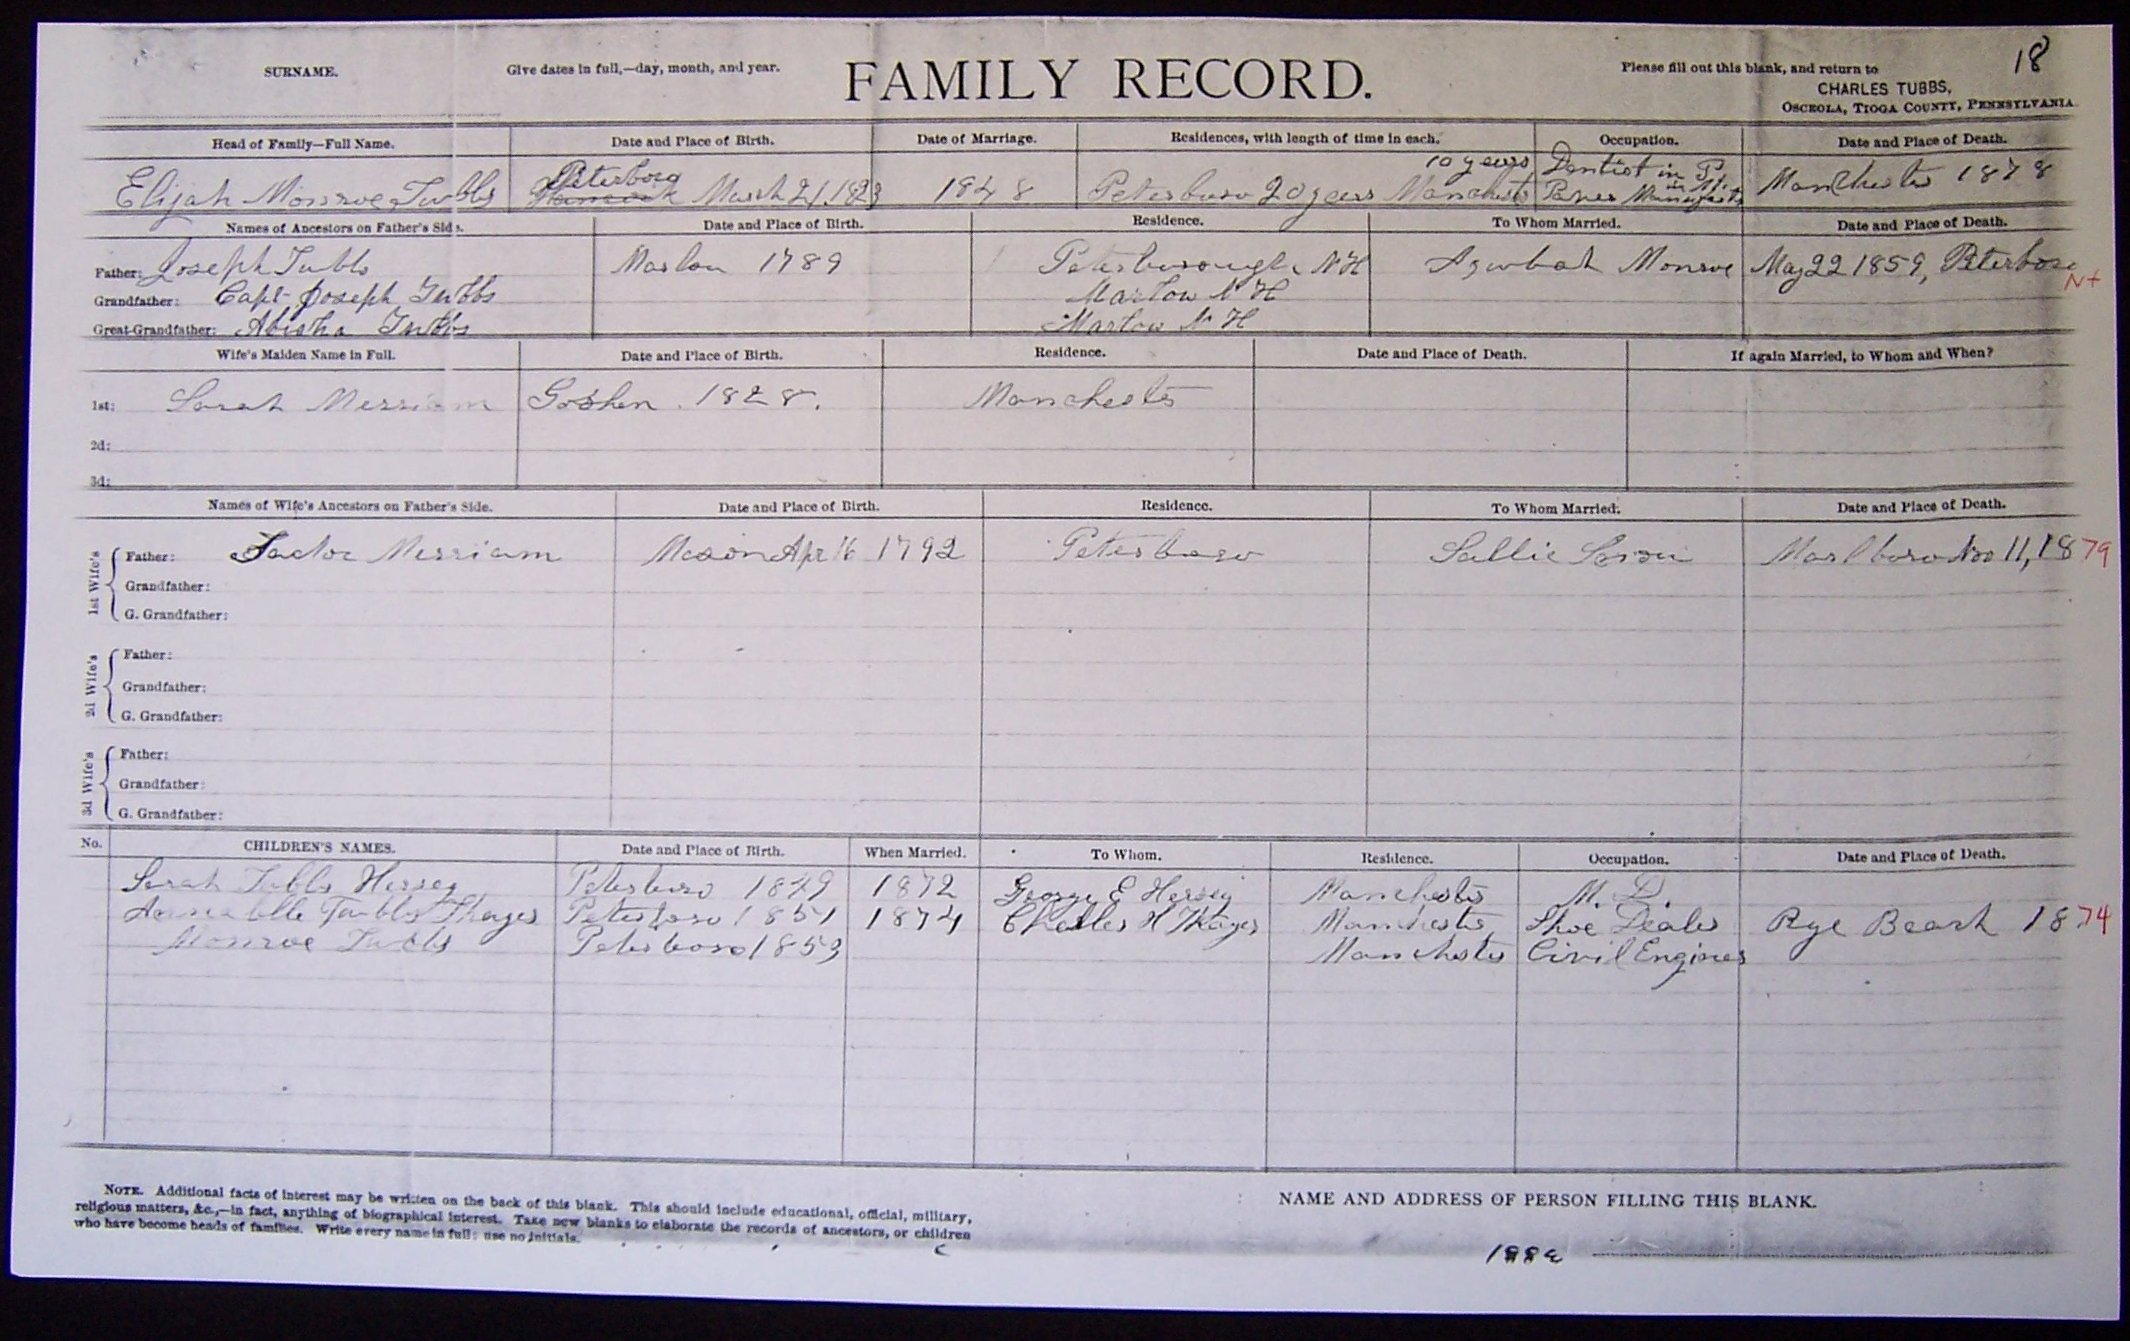 18
SURNAME.
Give dates in full,—day, month, and year.
FAMILY RECORD.
Please fill out this blank, and return to
CHARLES TUBBS,
OSCEOLA, TIOGA COUNTY, PENNSYLVANIA.
Head of Family—Full Name. Date and Place of Birth. Date of Marriage. Residences, with length of time in each. Occupation. Date and Place of Death.
Peterboro 10 years Dentist in P.
Elijah Monroe Tubbs Hancock March 21, 1823 1848 Peterboro 20 years Manchester Paper Manchester 1878
Names of Ancestors on Father's Side. Date and Place of Birth. Residence. To Whom Married. Date and Place of Death.
Father: Joseph Tubbs Marlow 1789 Peterborough N H Monroe May 22 1859, Peterboro
Grandfather: Capt Joseph Tubbs Marlow N H
Great-Grandfather: Abisha Tubbs Marlow N H
Wife's Maiden Name in Full. Date and Place of Birth. Residence. Date and Place of Death. If again Married, to Whom and When?
1st: Sarah Merriam Goshen. 1828. Manchester
2d:
3d:
Names of Wife's Ancestors on Father's Side. Date and Place of Birth. Residence. To Whom Married. Date and Place of Death.
1st Wife's
Father: Merriam Mason Apr 16 1792 Peterboro Sallie Marlboro Nov 11, 1879
Grandfather:
G. Grandfather:
2d Wife's
Father:
Grandfather:
G. Grandfather:
3d Wife's
Father:
Grandfather:
G. Grandfather:
No. CHILDREN'S NAMES. Date and Place of Birth. When Married. To Whom. Residence. Occupation. Date and Place of Death.
Sarah Tubbs Hersey Peterboro 1849 1872 George E Hersey Manchester M. D.
Tubbs Thayer Peterboro 1851 1874 Charles H Thayer Manchester Shoe Dealer Rye Beach 1874
Monroe Tubbs Peterboro 1853 Manchester Civil Engineer
NOTE. Additional facts of interest may be written on the back of this blank. This should include educational, official, military,
religious matters, &c.,—in fact, anything of biographical interest. Take new blanks to elaborate the records of ancestors, or children
who have become heads of families. Write every name in full; use no initials.
NAME AND ADDRESS OF PERSON FILLING THIS BLANK.